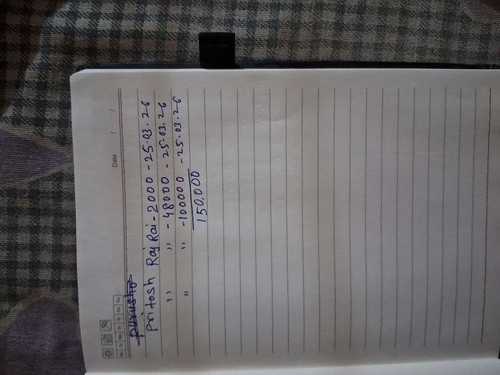 Date / /
purusho
Pritosh Raj Rai - 2000 - 25.03.26
,, ,, - 48000 - 25.03.26
,, ,, - 100000 - 25.03.26
150,000